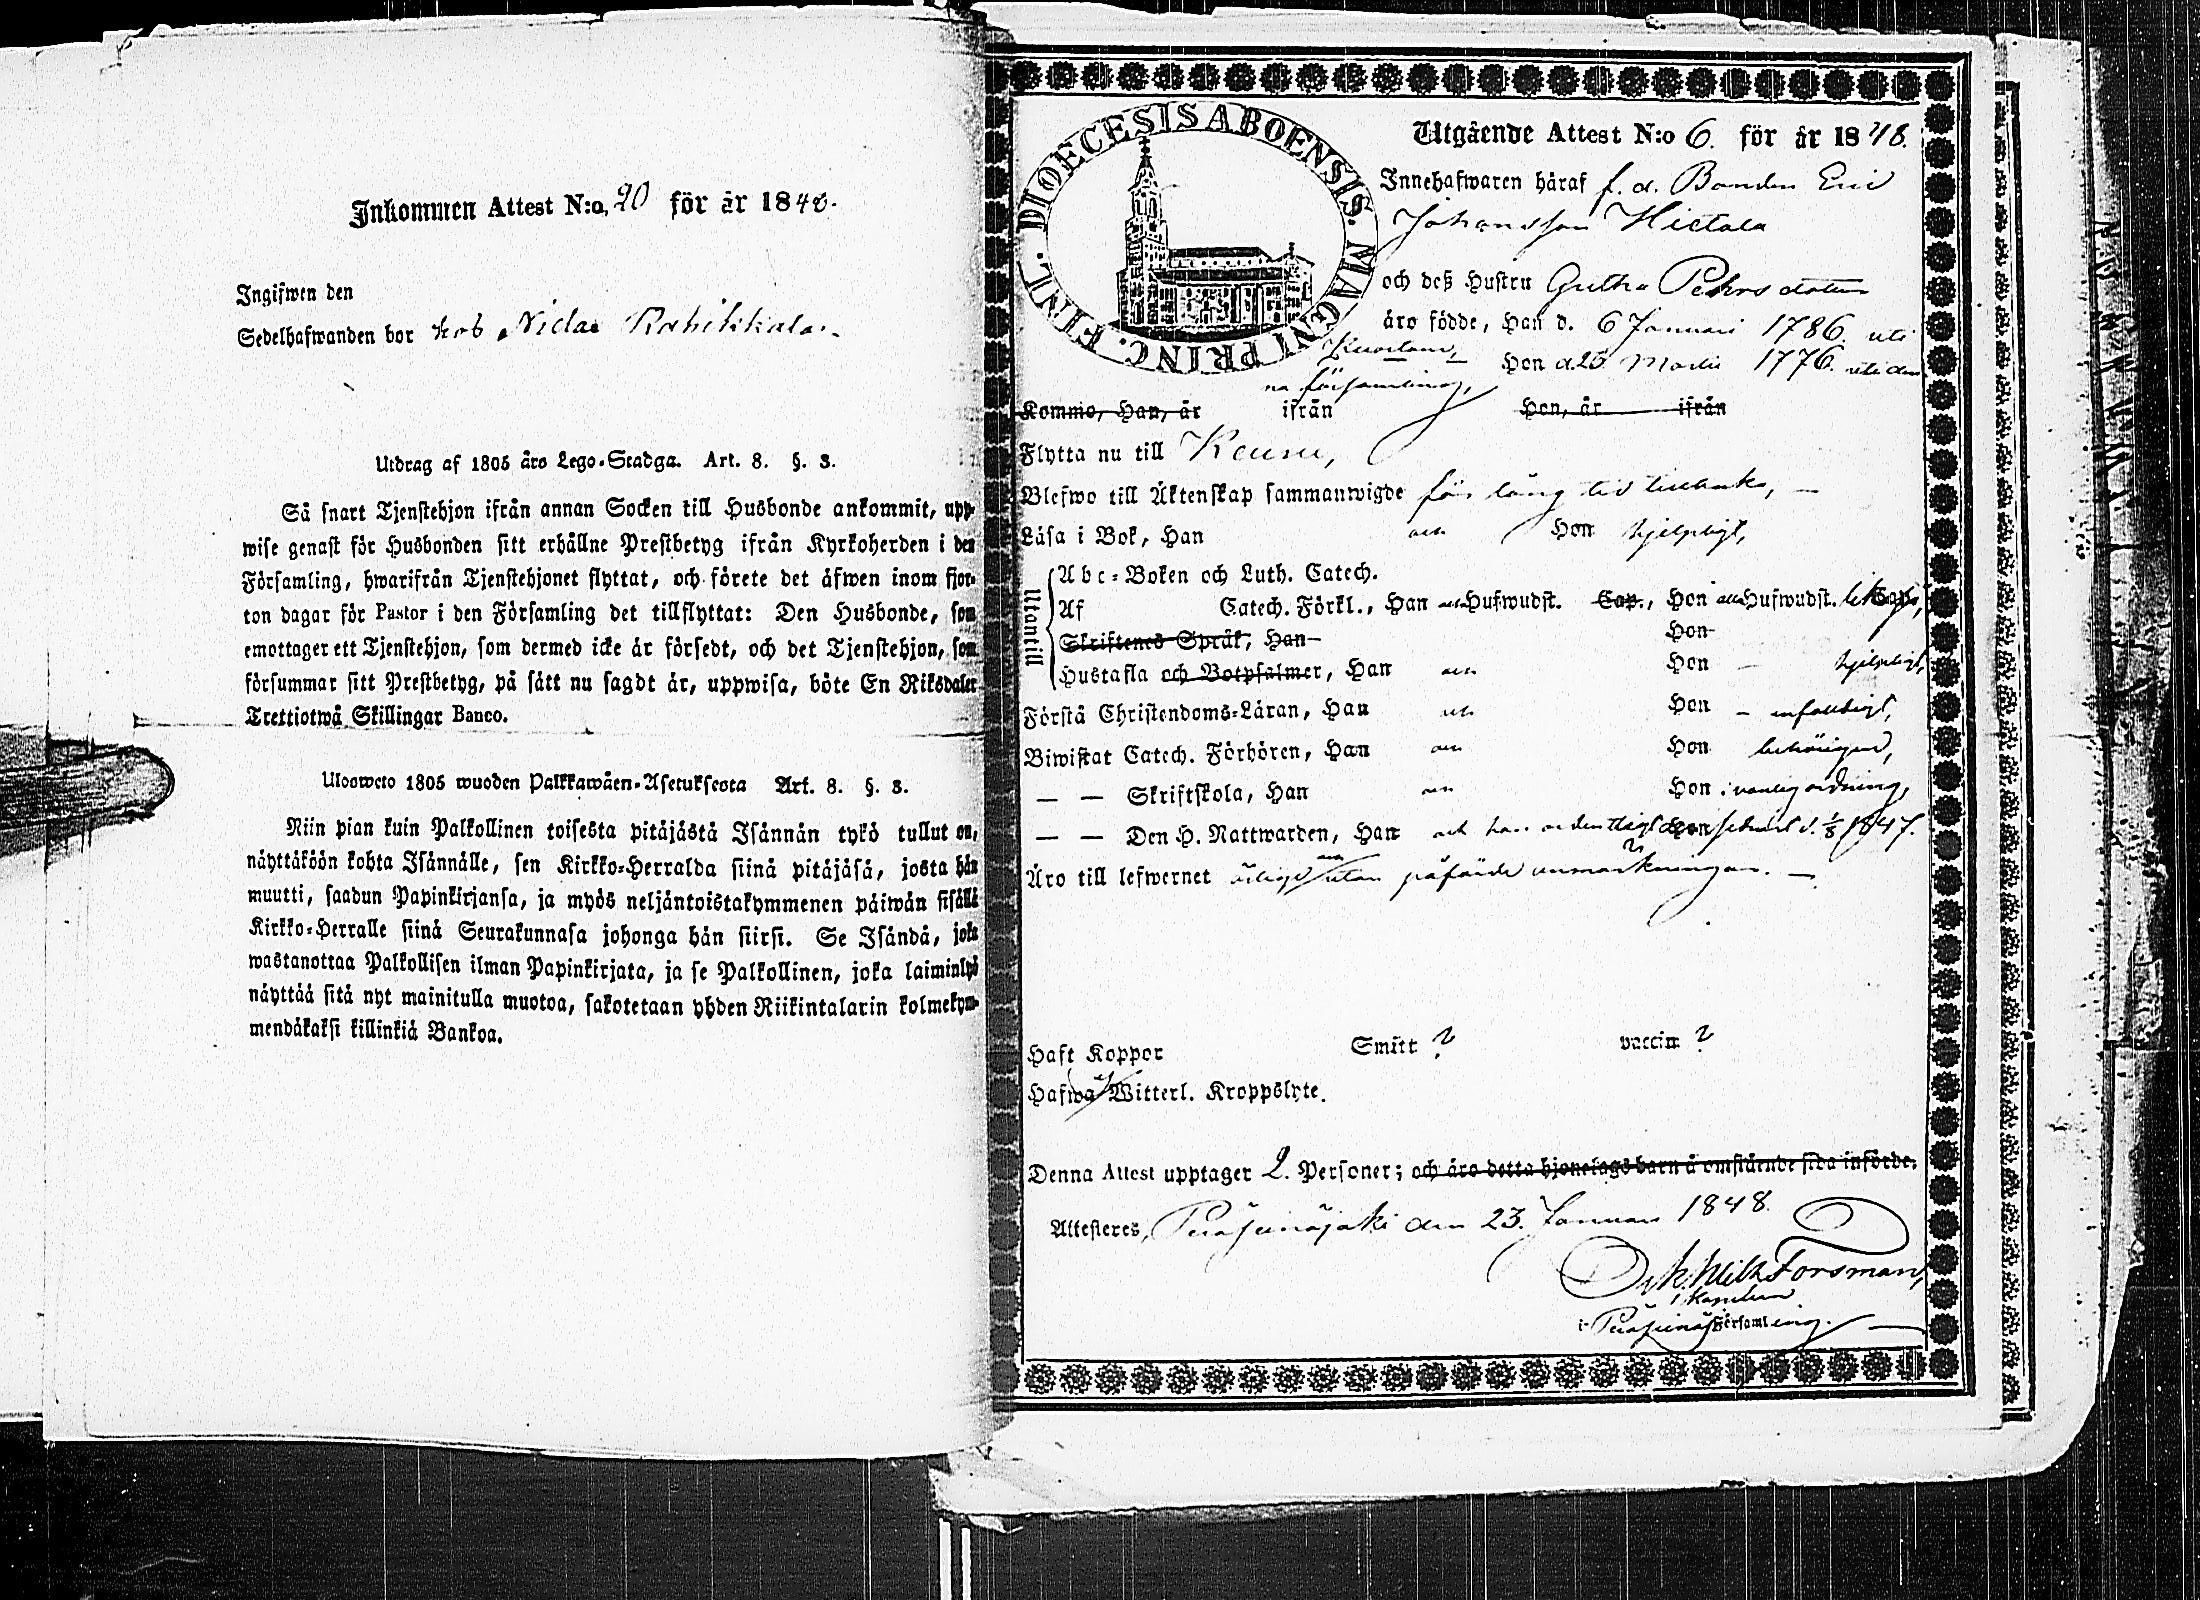 Inkommen Attest N:o, 20 för år 1848.
Ingifwen den
Sedelhafwanden bor hos Niclas Rahikkala.
Utdrag af 1805 års Lego-Stadga. Art. 8. §. 3.
Så snart Tjenstehjon ifrån annan Socken till Husbonde ankommit, upp-
wise genast för Husbonden sitt erhållne Prestbetyg ifrån Kyrkoherden i den
Församling, hwarifrån Tjenstehjonet flyttat, och förete det äfwen inom fjor-
ton dagar för Pastor i den Församling det tillflyttat: Den Husbonde, som
emottager ett Tjenstehjon, som dermed icke är försedt, och det Tjenstehjon, som
försummar sitt Prestbetyg, på sätt nu sagdt är, uppwisa, böte En Riksdaler
Trettiotwå Skillingar Banco.
Ulosweto 1805 wuoden Palkkawäen-Asetuksesta Art. 8. §. 3.
Niin pian kuin Palkollinen toisesta pitäjästä Isännän tykö tullut on,
näyttäköön kohta Isännälle, sen Kirkko-Herralda siinä pitäjäsä, josta hän
muutti, saadun Papinkirjansa, ja myös neljäntoistakymmenen päiwän sisällä
Kirkko-Herralle siinä Seurakunnasa johonga hän siirsi. Se Isändä, joka
wastanottaa Palkollisen ilman Papinkirjata, ja se Palkollinen, joka laiminlyö
näyttää sitä nyt mainitulla muotoa, sakotetaan yhden Riikintalarin kolmekym-
mendäkaksi killinkiä Bankoa.
DIOECESIS ABOENSIS. MAGNI PRINC. FINL.
Utgående Attest N:o 6. för år 1848.
Innehafwaren häraf f. d. Bonden Eric
Johansson Hietala
och deß Hustru Gretha Pehrsdotter
äro födde, Han d. 6 Januari 1786. uti
Kuortane, Hon d. 25 Martii 1776. uti den
na församling,
Kommo, Han, år ifrån Hon, år ifrån
Flytta nu till Keuru,
Blefwo till Äktenskap sammanwigde för lång tid tillbaka,
Läsa i Bok, Han och Hon hjelpligt,
Utantill
Abc-Boken och Luth. Catech.
Af Catech. Förkl., Han och Hufwudst. Cap., Hon alla Hufwudst. Cap.
Skriftenes Språk, Han Hon
Hustafla och Botpsalmer, Han och Hon hjelpligt,
Förstå Christendoms-Läran, Han och Hon enfaldigt,
Biwistat Catech. Förhören, Han och Hon behörigen,
— — Skriftskola, Han och Hon i vanlig ordning,
— — Den H. Nattwarden, Han och hon ordentligt Hon senast d. 1/8 1847.
Äro till lefwernet ärlige utan påförde anmärkningar.
Haft Koppor Smitt ? vaccin ?
Hafwa ej Witterl. Kroppslyte.
Denna Attest upptager 2. Personer; och äro detta hjonelags barn å omstående sida införde.
Attesteres, Peräseinäjoki den 23. Januari 1848.
Wilh Forsman,
Kapellan
i Peräseinäj Församling.